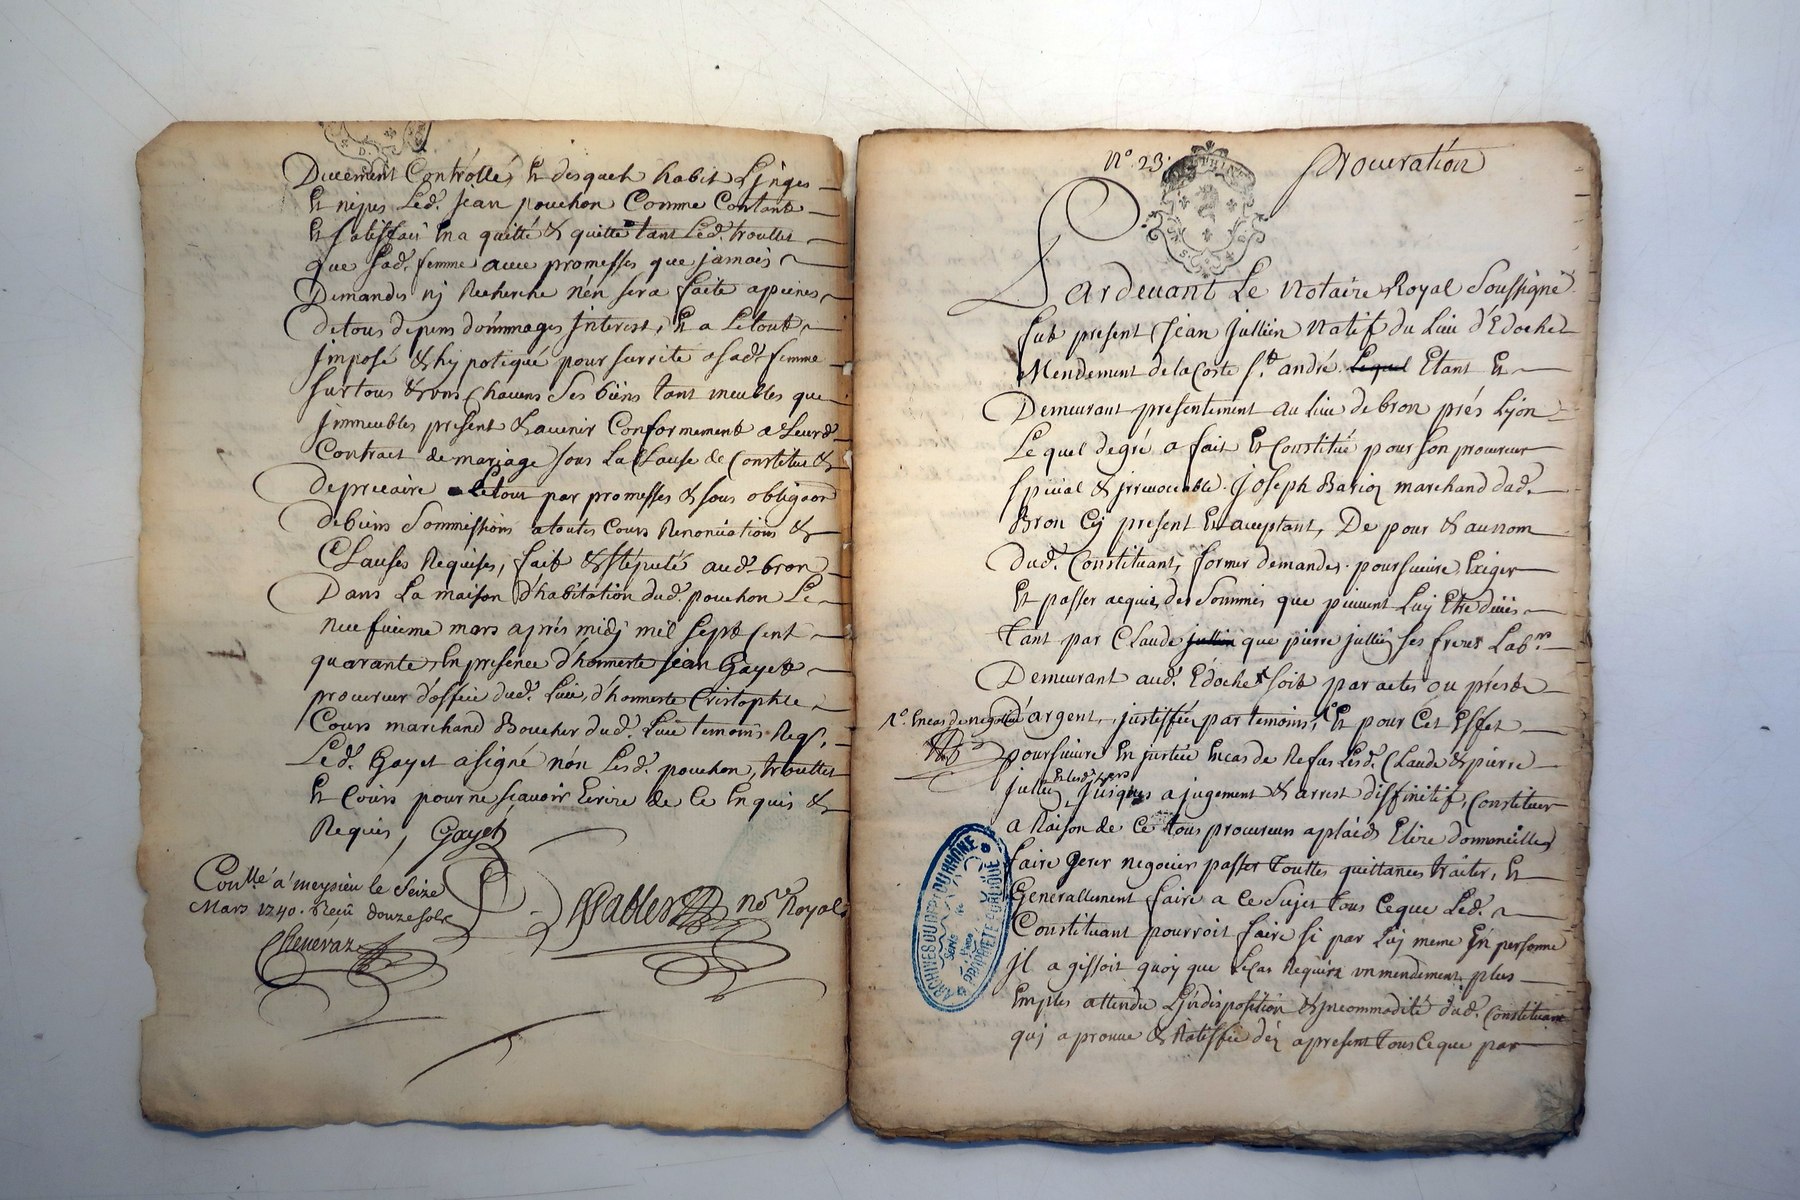 Duement Controllé, Et desquels habit Linges
Et nipes Led. jean pouchon Comme Contant
Et satisfait En a quitté & quitte tant Led. trouttet
que sad. femme avec promesses que jamais
Demandes nj Recherche n'en sera faite apeines
de tous depens dommages Interest, Et a Letout
Imposé & hypotiqué pour surreté a sad. femme
sur tous & uns Chacuns Ses biens tant meubles que
Immeubles present & avenir Conformement a Leurd.
Contract de mariage sous La Clause de Constitut &
de precaire Letout par promesses & sous obligaon
de biens Sommissions a toutes Cours Renonciations &
Clauses Requises, fait & stipulé aud. bron
Dans La maison d'habitation dud. pouchon Le
neufvieme mars aprés midj mil sept Cent
quarante, En presence d'honneste jean Gayet
procureur d'office dud. Lieu, d'honneste Cristophle
Cours marchand Boucher dud. Lieu temoins Req.
Led. Gayet a signé nón Lesd. pouchon, trouttet
Et Cours pour ne scavoir Ecrire de Ce Enquis &
Requis, Gayet
Conlle. a meysieu le Seize
Mars 1740. Reçu douze sols
no.re Royal
N.o 23.
Procuration
Pardevant Le Notaire Royal Soussigné
fut present jean jullien natif du Lieu d'Edoche
Mendement de la Coste S.t andré. Lequel Etant Et
Demeurant presentement au Lieu de bron prés Lyon
Lequel de gré a fait Et Constitué pour son procureur
special & jrrevocable. joseph Barioz marchand dud.
Bron Cy present Et acceptant, De pour & au nom
dud. Constituant, former demandes. poursuivre Exiger
Et passer acquis, des Sommes que peuvent Luy Etre düës
tant par Claude jullin que pierre jullien ses freres Lab.rs
Demeurant aud. Edoche soit par actes ou préts
d'argent, justiffiée par temoins, Et pour Cet Effet
Encas de negative
poursuivre En justice Encas de Refus Lesd. Claude & pierre
jullien Jusques a jugement & arrest diffinitif, Constituer
a Raison de Ce tous procureurs a plaids Elire dommeilles
faire Gerer negocier passer touttes quittances traiter, Et
Generallement faire a Ce Sujet tous Ceque Led.
Constituant pourroit faire si par Luj meme En personne
Jl agissoit quoy que Le Cas Requira un mendement plus
Emples attendu L'indisposition & jncommodité dud. Constituant
quj aprouve & Ratiffie déz a present tous Ceque par
ARCHIVES DU DEPT DU RHÔNE
PROPRIETE PUBLIQUE